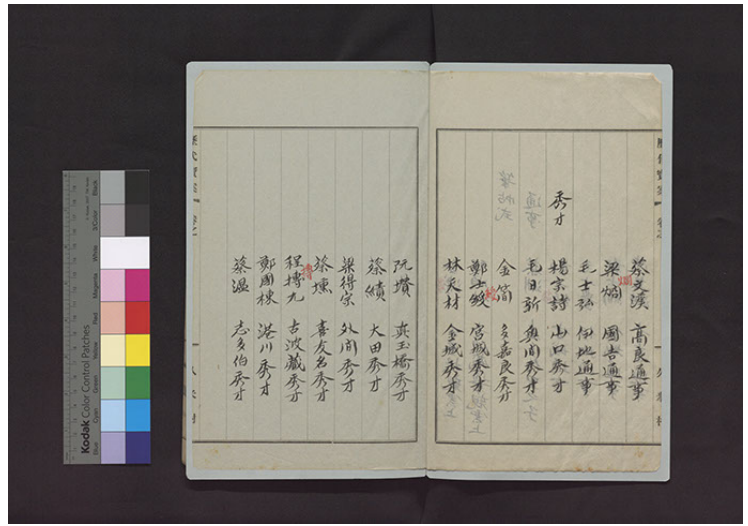 蔡文漢 高良通事
梁煌 國吉通事
毛士弘 伊地通事
秀才
楊宗詩 山口秀才
毛日新 奧間秀才
金簡 多嘉良秀才
鄭士綬 宮城秀才
林天材 金城秀才
阮瓚 真玉橋秀才
蔡績 大田秀才
梁得宗 外間秀才
蔡燻 喜友名秀才
程摶九 古波藏秀才
鄭國棟 港川秀才
蔡溫 志多伯秀才
Kodak Color Control Patches
Blue Cyan Green Yellow Red Magenta White 3/Color Black